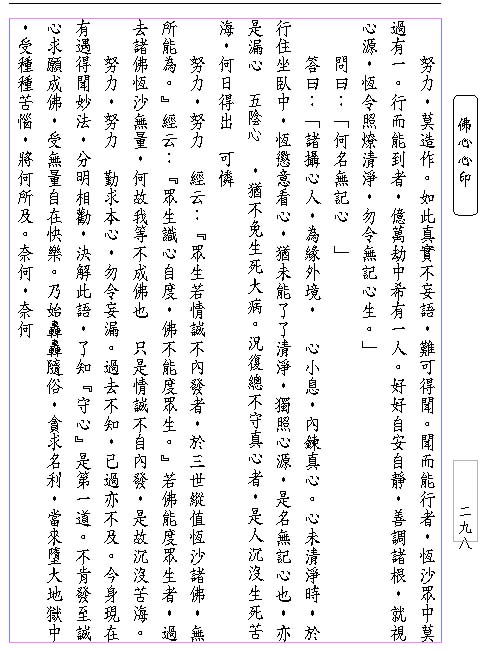 佛心心印
努力，莫造作。如此真實不妄語，難可得聞。聞而能行者，恆沙眾中莫
過有一。行而能到者，億萬劫中希有一人。好好自安自靜，善調諸根，就視
心源，恆令照燎清淨，勿令無記心生。」
問曰：「何名無記心　」
答曰：「諸攝心人，為緣外境，　心小息，內鍊真心。心未清淨時，於
行住坐臥中，恆懲意看心，猶未能了了清淨，獨照心源，是名無記心也，亦
是漏心　五陰心　，猶不免生死大病。況復總不守真心者，是人沉沒生死苦
海，何日得出　可憐
努力，努力　經云：『眾生若情誠不內發者，於三世縱值恆沙諸佛，無
所能為。』經云：『眾生識心自度，佛不能度眾生。』若佛能度眾生者，過
去諸佛恆沙無量，何故我等不成佛也　只是情誠不自內發，是故沉沒苦海。
努力，努力　勤求本心，勿令妄漏。過去不知，已過亦不及。今身現在
有遇得聞妙法，分明相勸，決解此語，了知『守心』是第一道。不肯發至誠
心求願成佛，受無量自在快樂。乃始轟轟隨俗，貪求名利，當來墮大地獄中
，受種種苦惱，將何所及。奈何，奈何
二九八